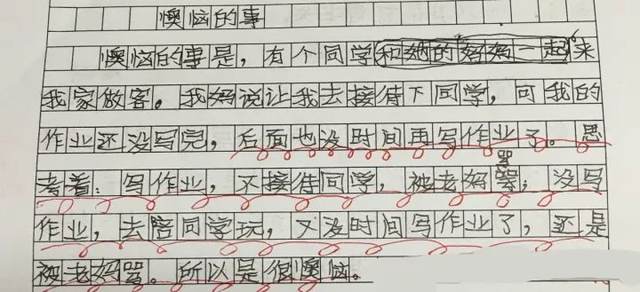 懊恼的事
懊恼的事是，有个同学和她的妈妈一起来
我家做客。我妈说让我去接待下同学，可我的
作业还没写完，后面也没时间再写作业了。思
考着：写作业，不接待同学，被老妈骂；没写
作业，去陪同学玩，又没时间写作业了，还是
被老妈骂。所以是很懊恼。